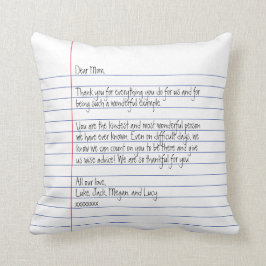 Dear Mom,
Thank you for everything you do for us and for
being such a wonderful example.
You are the kindest and most wonderful person
we have ever known. Even on difficult days, we
know we can count on you to be there and give
us wise advice! We are so thankful for you.
All our love,
Luke, Jack, Megan, and Lucy
xxxxxxxx